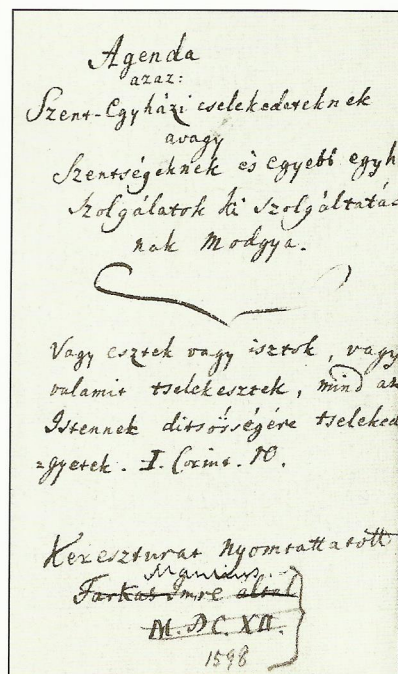 Agenda
azaz:
Szent-Egyházi cselekedeteknek
avagy
Szentségeknek és egyebb egyh
Szolgálatok ki Szolgáltatás
nak Modgya.
Vagy esztek vagy isztok, vagy
valamit tselekesztek, mind az
Istennek ditsősségére tseleked
gyetek. I. Corint. 10.
Kereszturat Nyomtattatott
Farkas Imre által
M. DC. XII.
1598